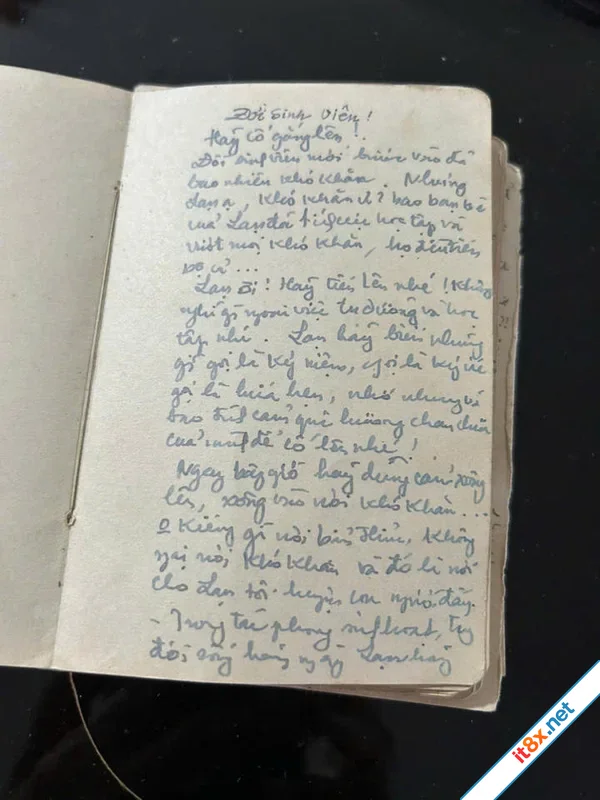 Đời sinh viên!
Hãy cố gắng lên!
Đời sinh viên mới bước vào đã
bao nhiêu khó khăn. Nhưng
Lan ạ, khó khăn ư? bao bạn bè
của Lan đã học tập và
vượt mọi khó khăn, họ đều tiến
bộ cả...
Lan ơi! Hãy tiến lên nhé! Không
nghĩ gì ngoài việc tu dưỡng và học
tập nhé. Lan hãy biến những
gì gọi là kỷ niệm, gọi là ký ức
gọi là hứa hẹn, nhớ nhung và
bao tình cảm quê hương chan chứa
của mình để cố lên nhé!
Ngay bây giờ hãy dũng cảm xông
lên, xông vào nơi khó khăn...
o Kiêng gì nơi hiểm, không
ngại nơi khó khăn và đó là nơi
cho Lan tôi luyện con người đấy.
- Trong tác phong sinh hoạt,
đời sống hàng ngày Lan hãy
it8x.net